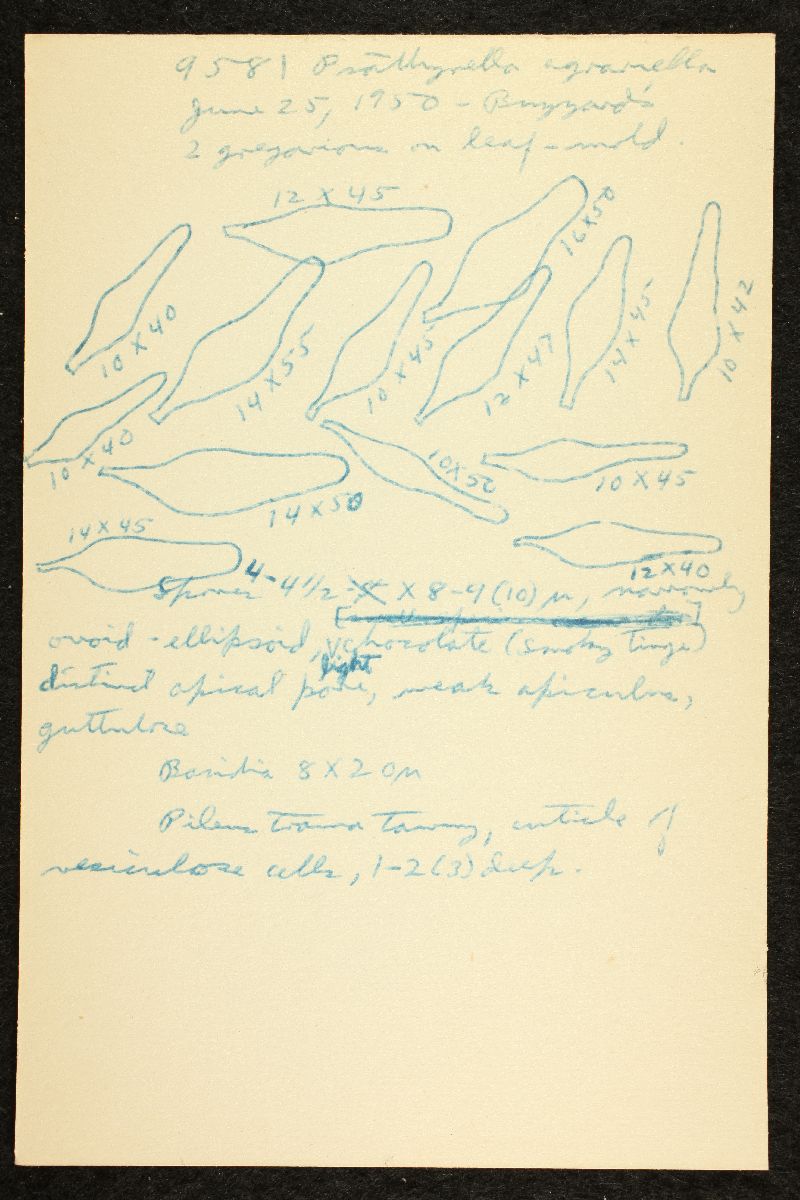 9581 Psathyrella agrariella
June 25, 1950 - Buzzard's
2 gregarious on leaf-mold.
12 X 45
16 X 50
10 X 40
14 X 55
10 X 45
12 X 47
14 X 45
10 X 42
10 X 40
14 X 50
10 X 50
10 X 45
14 X 45
12 X 40
Spores 4-4 1/2 X 8-9 (10) µ, narrowly
ovoid-ellipsoid, light chocolate (smoky tinge)
distinct apical pore, weak apiculus,
guttulose
Basidia 8 X 20µ
Pileus trama tawny, cuticle of
vesiculose cells, 1-2 (3) deep.